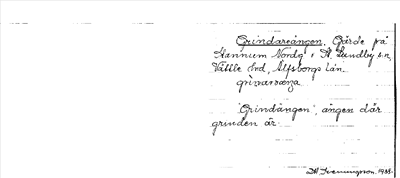 Grindareängen. Gärde på
Hannium Nordg i St. Lundby s:n,
Vättle hrd, Älfsborgs län.
"Grindängen", ängen där
grinden är.
1938.